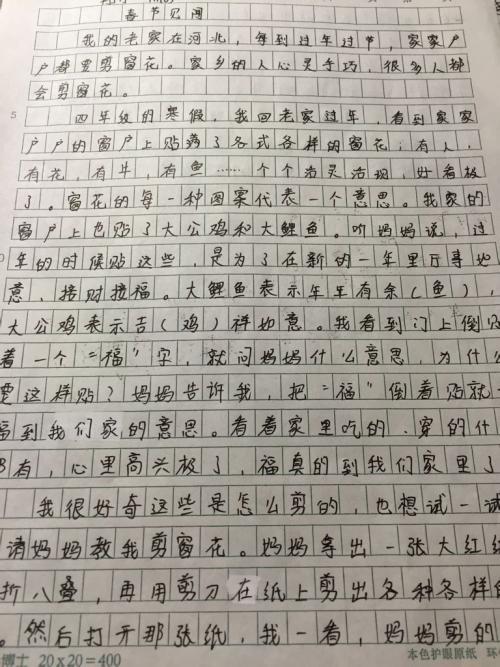 春节见闻
我的老家在河北，每到过年过节，家家户
户都要剪窗花。家乡的人心灵手巧，很多人都
会剪窗花。
5
四年级的寒假，我回老家过年，看到家家
户户的窗户上贴满了各式各样的窗花；有人，
有花，有牛，有鱼……个个活灵活现，好看极
了。窗花的每一种图案代表一个意思。我家的
窗户上也贴了大公鸡和大鲤鱼。听妈妈说，过
年的时候贴这些，是为了在新的一年里万事如
意，接财接福。大鲤鱼表示年年有余（鱼），
大公鸡表示吉（鸡）祥如意。我看到门上倒
着一个“福”字，就问妈妈什么意思，为什
要这样贴？妈妈告诉我，把“福”倒着贴就
福到我们家的意思。看着家里吃的、穿的什
都有，心里高兴极了，福真的到我们家里了
我很好奇这些是怎么剪的，也想试一试
请妈妈教我剪窗花。妈妈拿出一张大红
折八叠，再用剪刀在纸上剪出各种各样
。然后打开那张纸，我一看，妈妈剪的
博士 20×20=400 本色护眼原纸 环